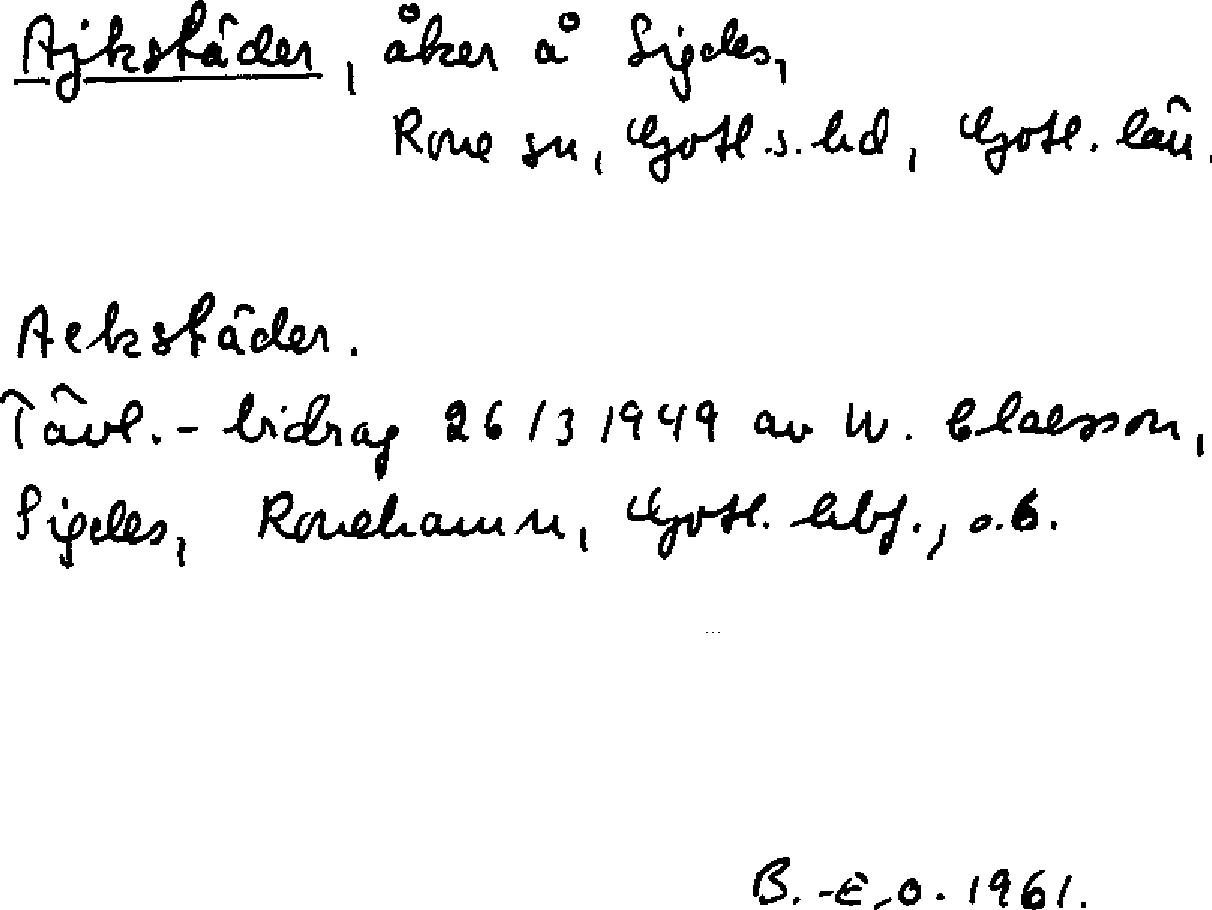 Ajkstäder, åker å Sigdes,
Rone sn, Gotl.s.hd, Gotl. län.
Aekstäder.
Tävl.-bidrag 26/3 1949 av W. Claesson,
Sigdes, Ronehamn, Gotl. hbf., o.b.
B.-E.O. 1961.